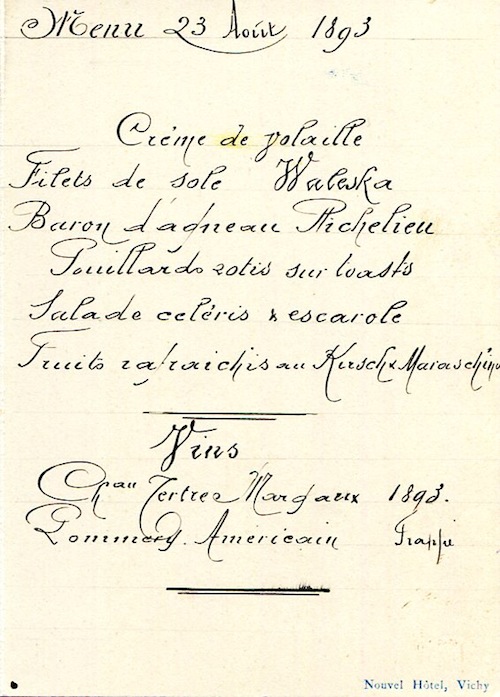 Menu 23 Août 1893
Crème de volaille
Filets de sole Waleska
Baron d'agneau Richelieu
Pouillards rotis sur toasts
Salade celéris & escarole
Fruits rafraichis au Kirsch & Maraschino
Vins
Chau Tertre Margaux 1893.
Pommery Américain Frappé
Nouvel Hôtel, Vichy